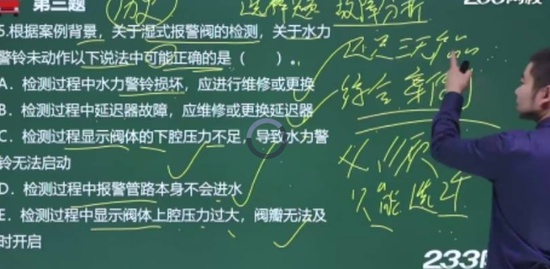 第三题
选择题 故障分析
233网校
5.根据案例背景，关于湿式报警阀的检测，关于水力
警铃未动作以下说法中可能正确的是（ ）。
A、检测过程中水力警铃损坏，应进行维修或更换
B、检测过程中延迟器故障，应维修或更换延迟器
C、检测过程显示阀体的下腔压力不足，导致水力警
铃无法启动
D、检测过程中报警管路本身不会进水
E、检测过程中显示阀体上腔压力过大，阀瓣无法及
时开启
综合案例
必须
只能选对
233网